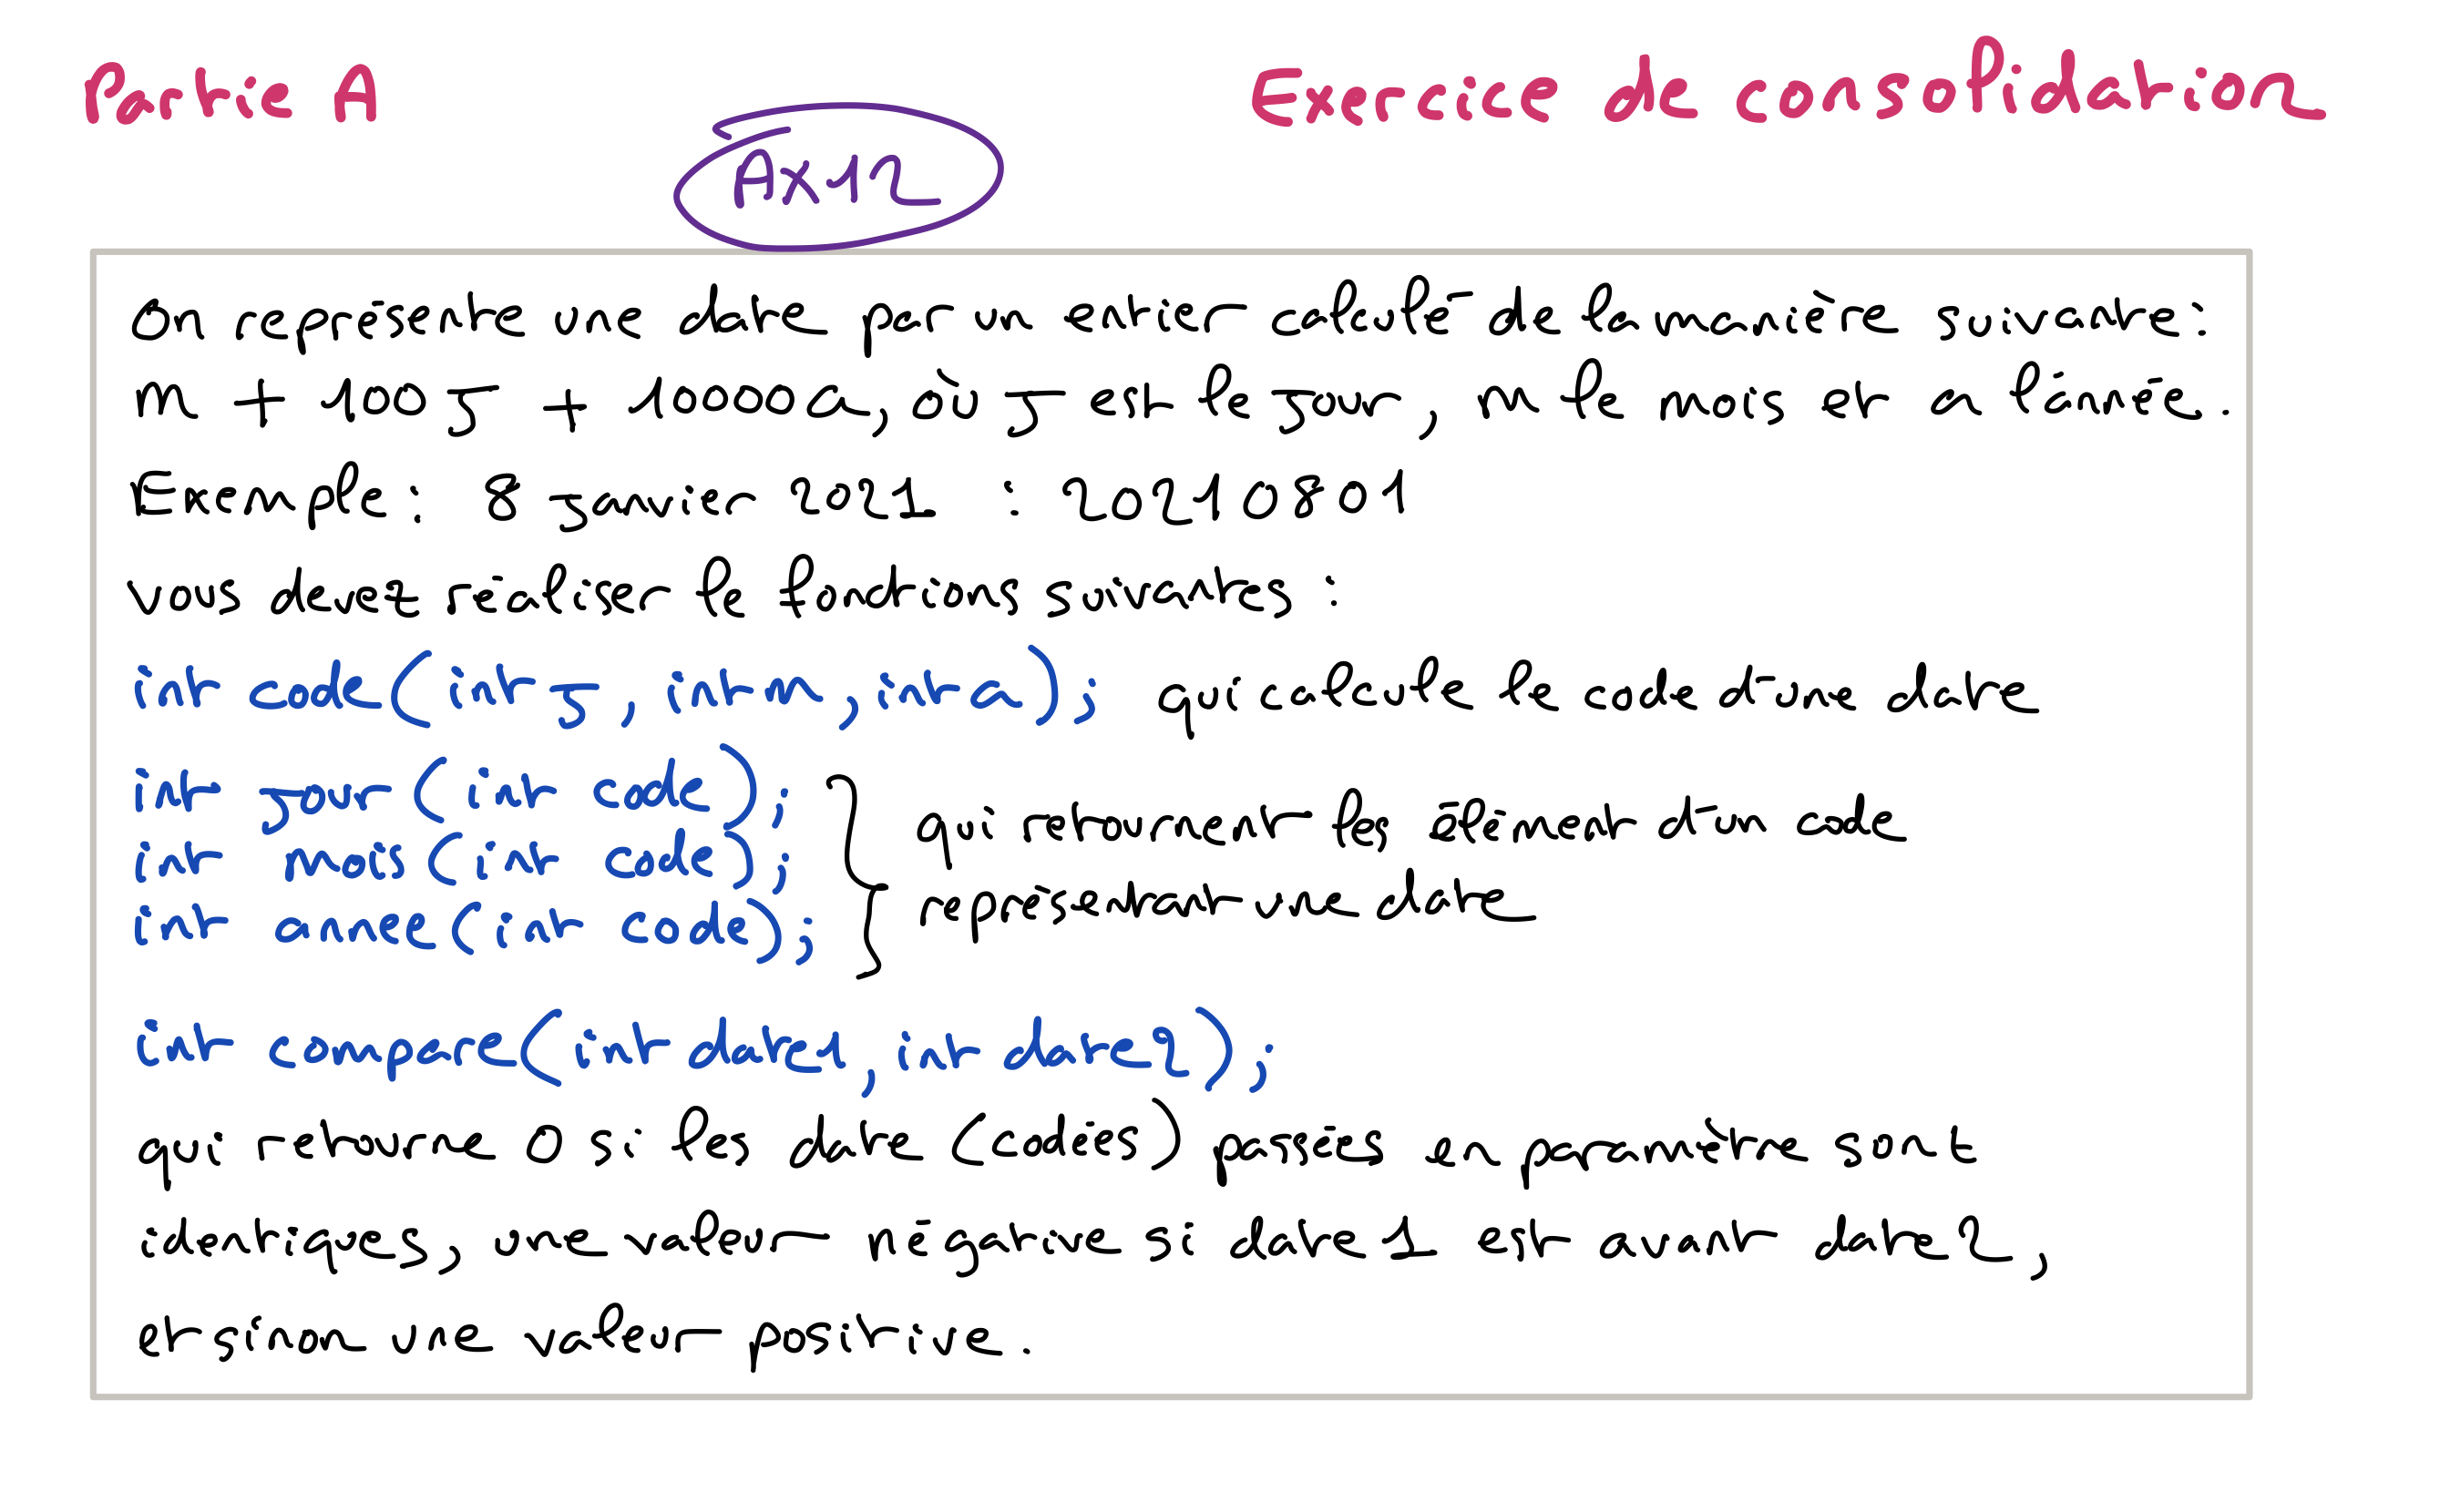 Partie A
Exercice de consolidation
AX12
On représente une date par un entier calculé de la manière suivante :
m + 100 j + 10000a, où j est le jour, m le mois et a l'année.
Exemple : 8 janvier 2021 : 20210801
vous devez réaliser le fonctions suivantes :
int code(int j, int m, int a); qui calcule le code d'une date
int jour(int code);
int mois(int code);
int annee(int code);
qui retournent les élément d'un code
représentant une date
int compare(int date1, int date2);
qui retourne 0 si les date (codées) passées en paramètre sont
identiques, une valeur négative si date1 est avant date2,
et sinon une valeur positive.